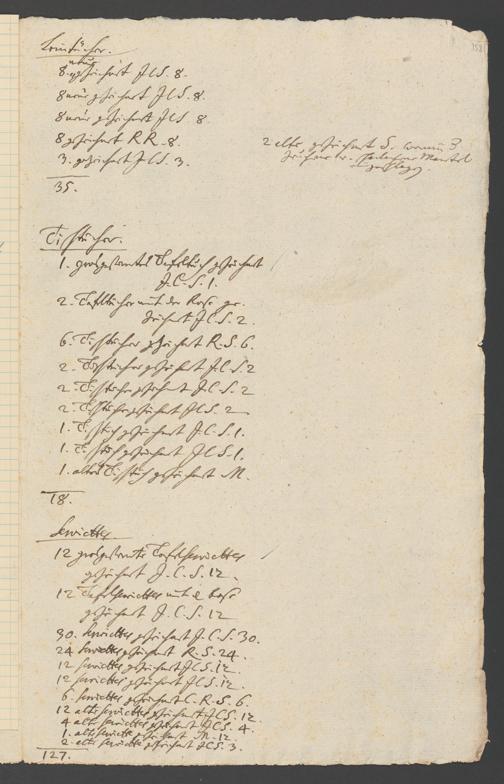 Leintücher.
neue
8. gezeichnet J C S. 8.
8 neue gezeichnet J C S. 8.
8 neue gezeichnet J C S. 8.
8 gezeichnet R R. 8.
3. gezeichnet J C S. 3.
35.
2 alte gezeichnet S.
Tischtücher.
1. Tafeltuch gezeichnet
J. C. S. 1.
2. Tafeltücher mit der Rose ge-
zeichnet J C S. 2.
6. Tischtücher gezeichnet R. S. 6.
2. Tischtücher gezeichnet J C S. 2
2 Tischtücher gezeichnet J C S. 2
2 Tischtücher gezeichnet J C S. 2
1. Tischtuch gezeichnet J. C. S. 1.
1. Tischtuch gezeichnet J C S. 1.
1. altes Tischtuch gezeichnet M.
18.
Serviettes.
12 Tafelserviettes
gezeichnet J. C. S. 12.
12 Tafelserviettes mit Rose
gezeichnet J. C. S. 12
30. Serviettes gezeichnet J. C. S. 30.
24 Serviettes gezeichnet R. S. 24.
12 Serviettes gezeichnet J C S. 12.
12 Serviettes gezeichnet J C S. 12.
6 Serviettes gezeichnet C. R. S. 6.
12 alte Serviettes gezeichnet J C S. 12.
4 alte Serviettes gezeichnet J C S. 4.
1. alte Serviette M. 12.
2 alte Serviette gezeichnet J C S. 3.
127.